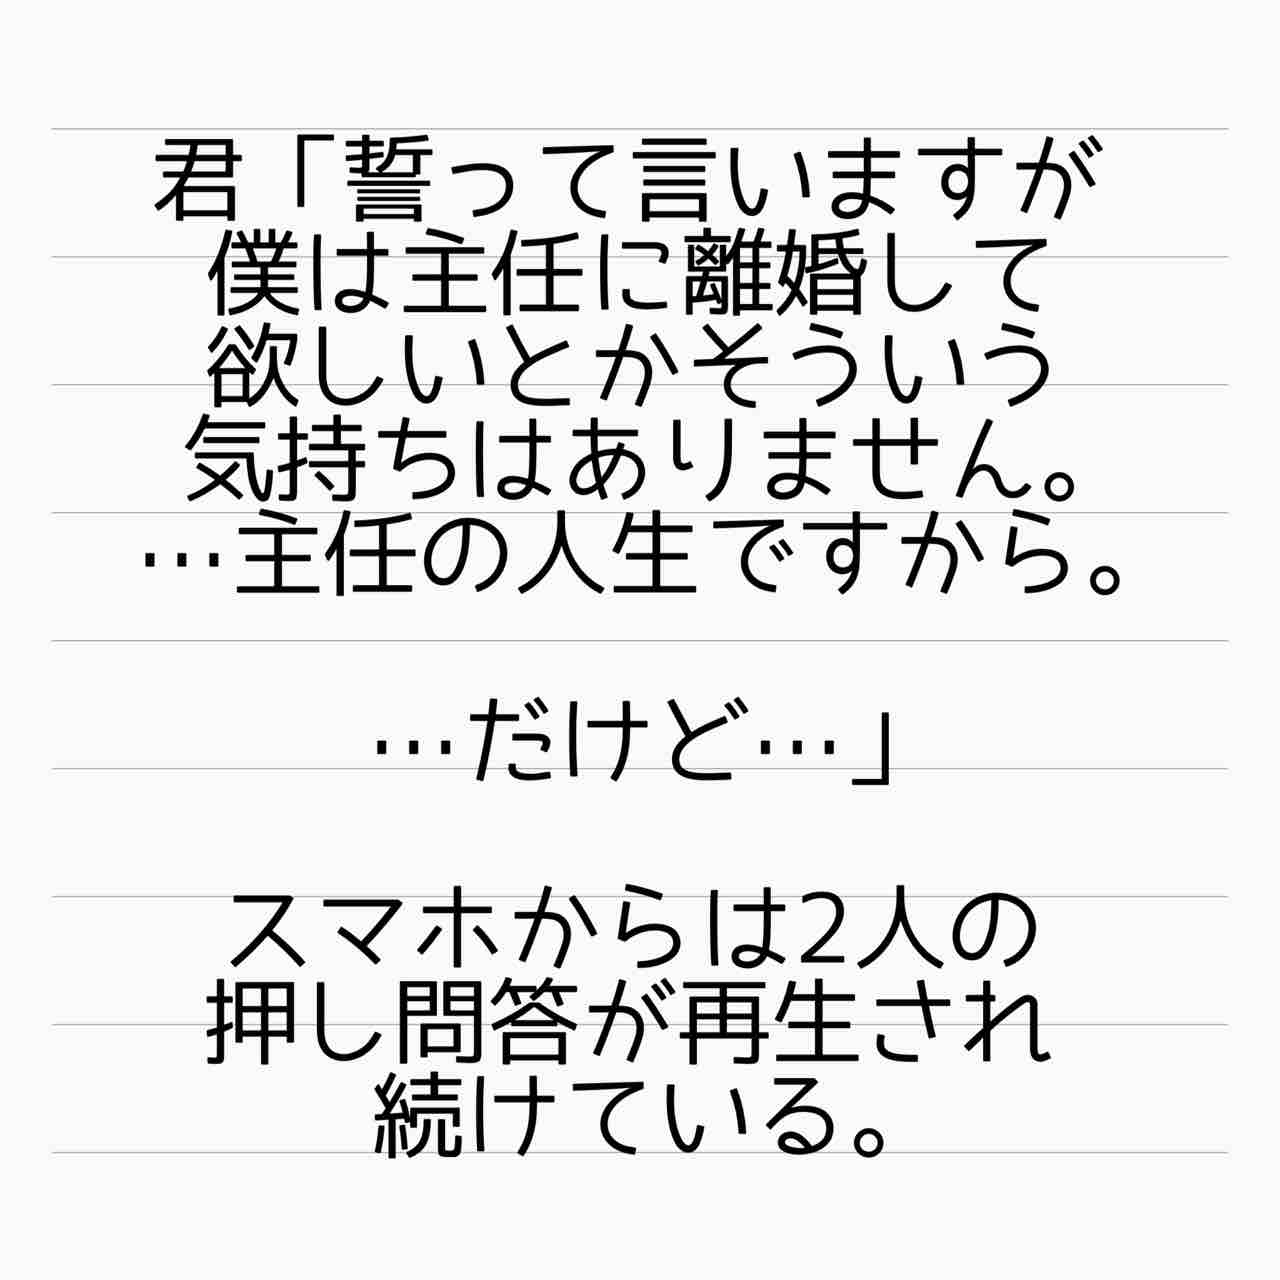 君「誓って言いますが
僕は主任に離婚して
欲しいとかそういう
気持ちはありません。
…主任の人生ですから。
…だけど…」
スマホからは2人の
押し問答が再生され
続けている。